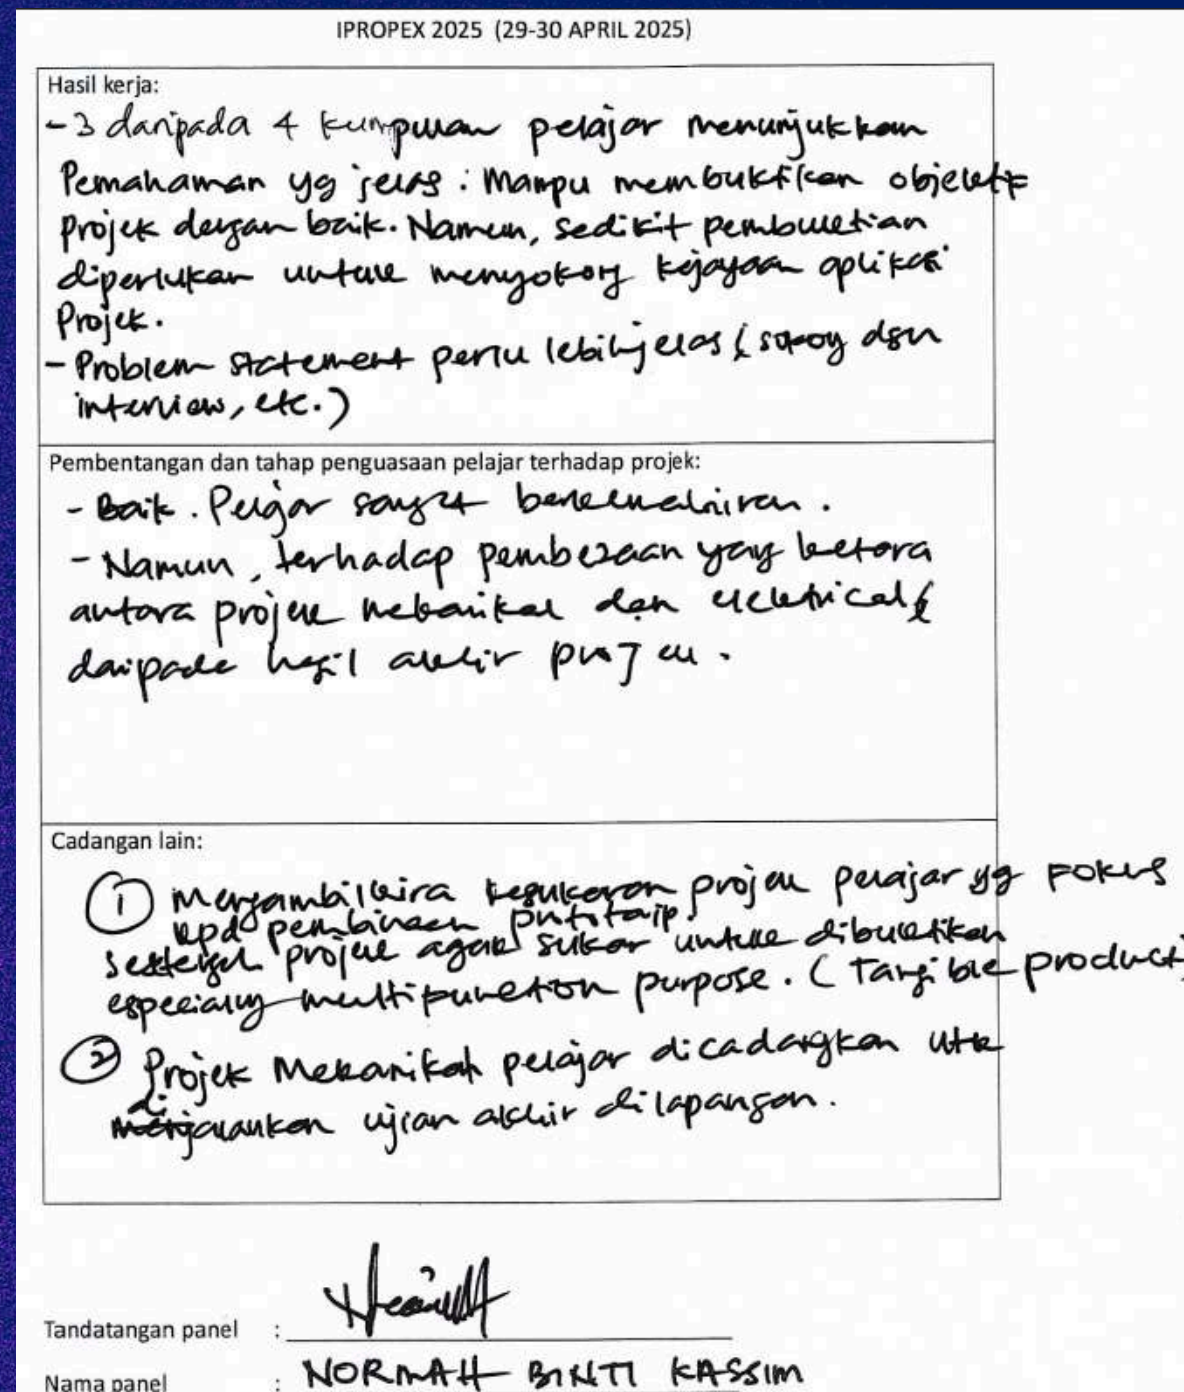 IPROPEX 2025 (29-30 APRIL 2025)
Hasil kerja:
- 3 daripada 4 kumpulan pelajar menunjukkan
Pemahaman yg jelas. Mampu membuktikan objektif
Projek dengan baik. Namun, sedikit pembuktian
diperlukan untuk menyokong kejayaan aplikasi
Projek.
- Problem statement perlu lebih jelas ( dan
interview, etc.)
Pembentangan dan tahap penguasaan pelajar terhadap projek:
- Baik. Pelajar sangat berkemahiran.
- Namun, terhadap pembezaan yang ketara
antara projek mekanikal dan electrical
daripada hasil akhir projek.
Cadangan lain:
① Mengambilkira kesukaran projek pelajar yg fokus
kpd pembinaan prototaip.
projek agak sukar untuk dibuktikan
especially multifunction purpose. (Tangible product)
② Projek Mekanikal pelajar dicadangkan utk
dijalankan ujian akhir dilapangan.
Tandatangan panel :
Nama panel : NORMAH BINTI KASSIM